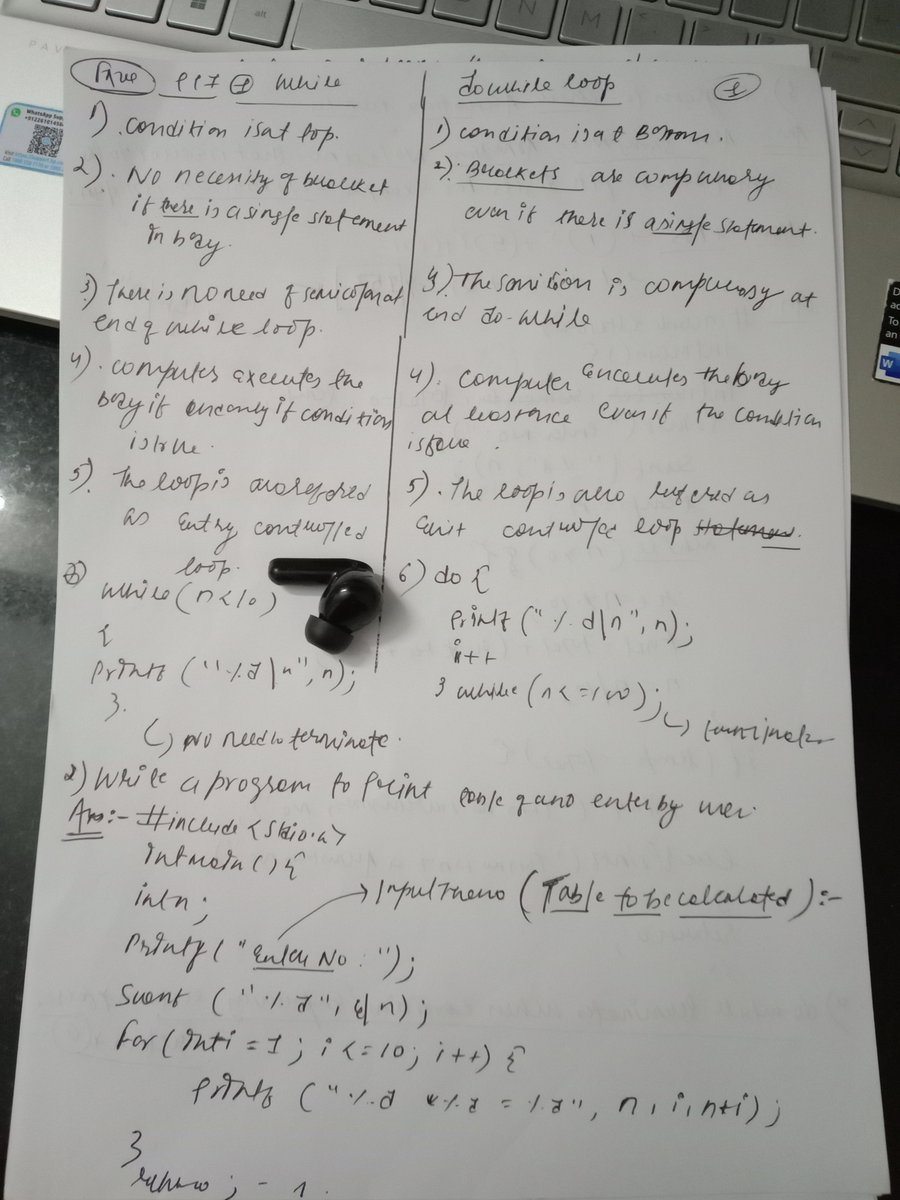 while
do while loop
1) . condition is at top.
2) . No necessity of bracket
if there is a single statement
in body.
3) There is no need of semicolon at
end of while loop.
4) . computer executes the
body if and only if condition
is true.
5) The loop is also
as Entry controlled
loop.
while (n<10)
{
printf ("%d\n", n);
}
no need to terminate.
1) condition is at Bottom.
2) . Brackets are
even if there is a single statement.
The is at
end do-while
4) . computer the body
at even if the condition
is
5) . The loop is also as
controlled loop
6) do {
printf ("%d\n", n);
i++
} while (n<=100);
2) Write a program to print by user.
Ans:- #include <stdio.h>
int main () {
int n;
Input (Table to be calculated) :-
printf ("Enter No : ");
("%d", &n);
for (int i = 1; i <= 10; i++) {
printf ("%d *%d = %d", n, i, n*i);
}